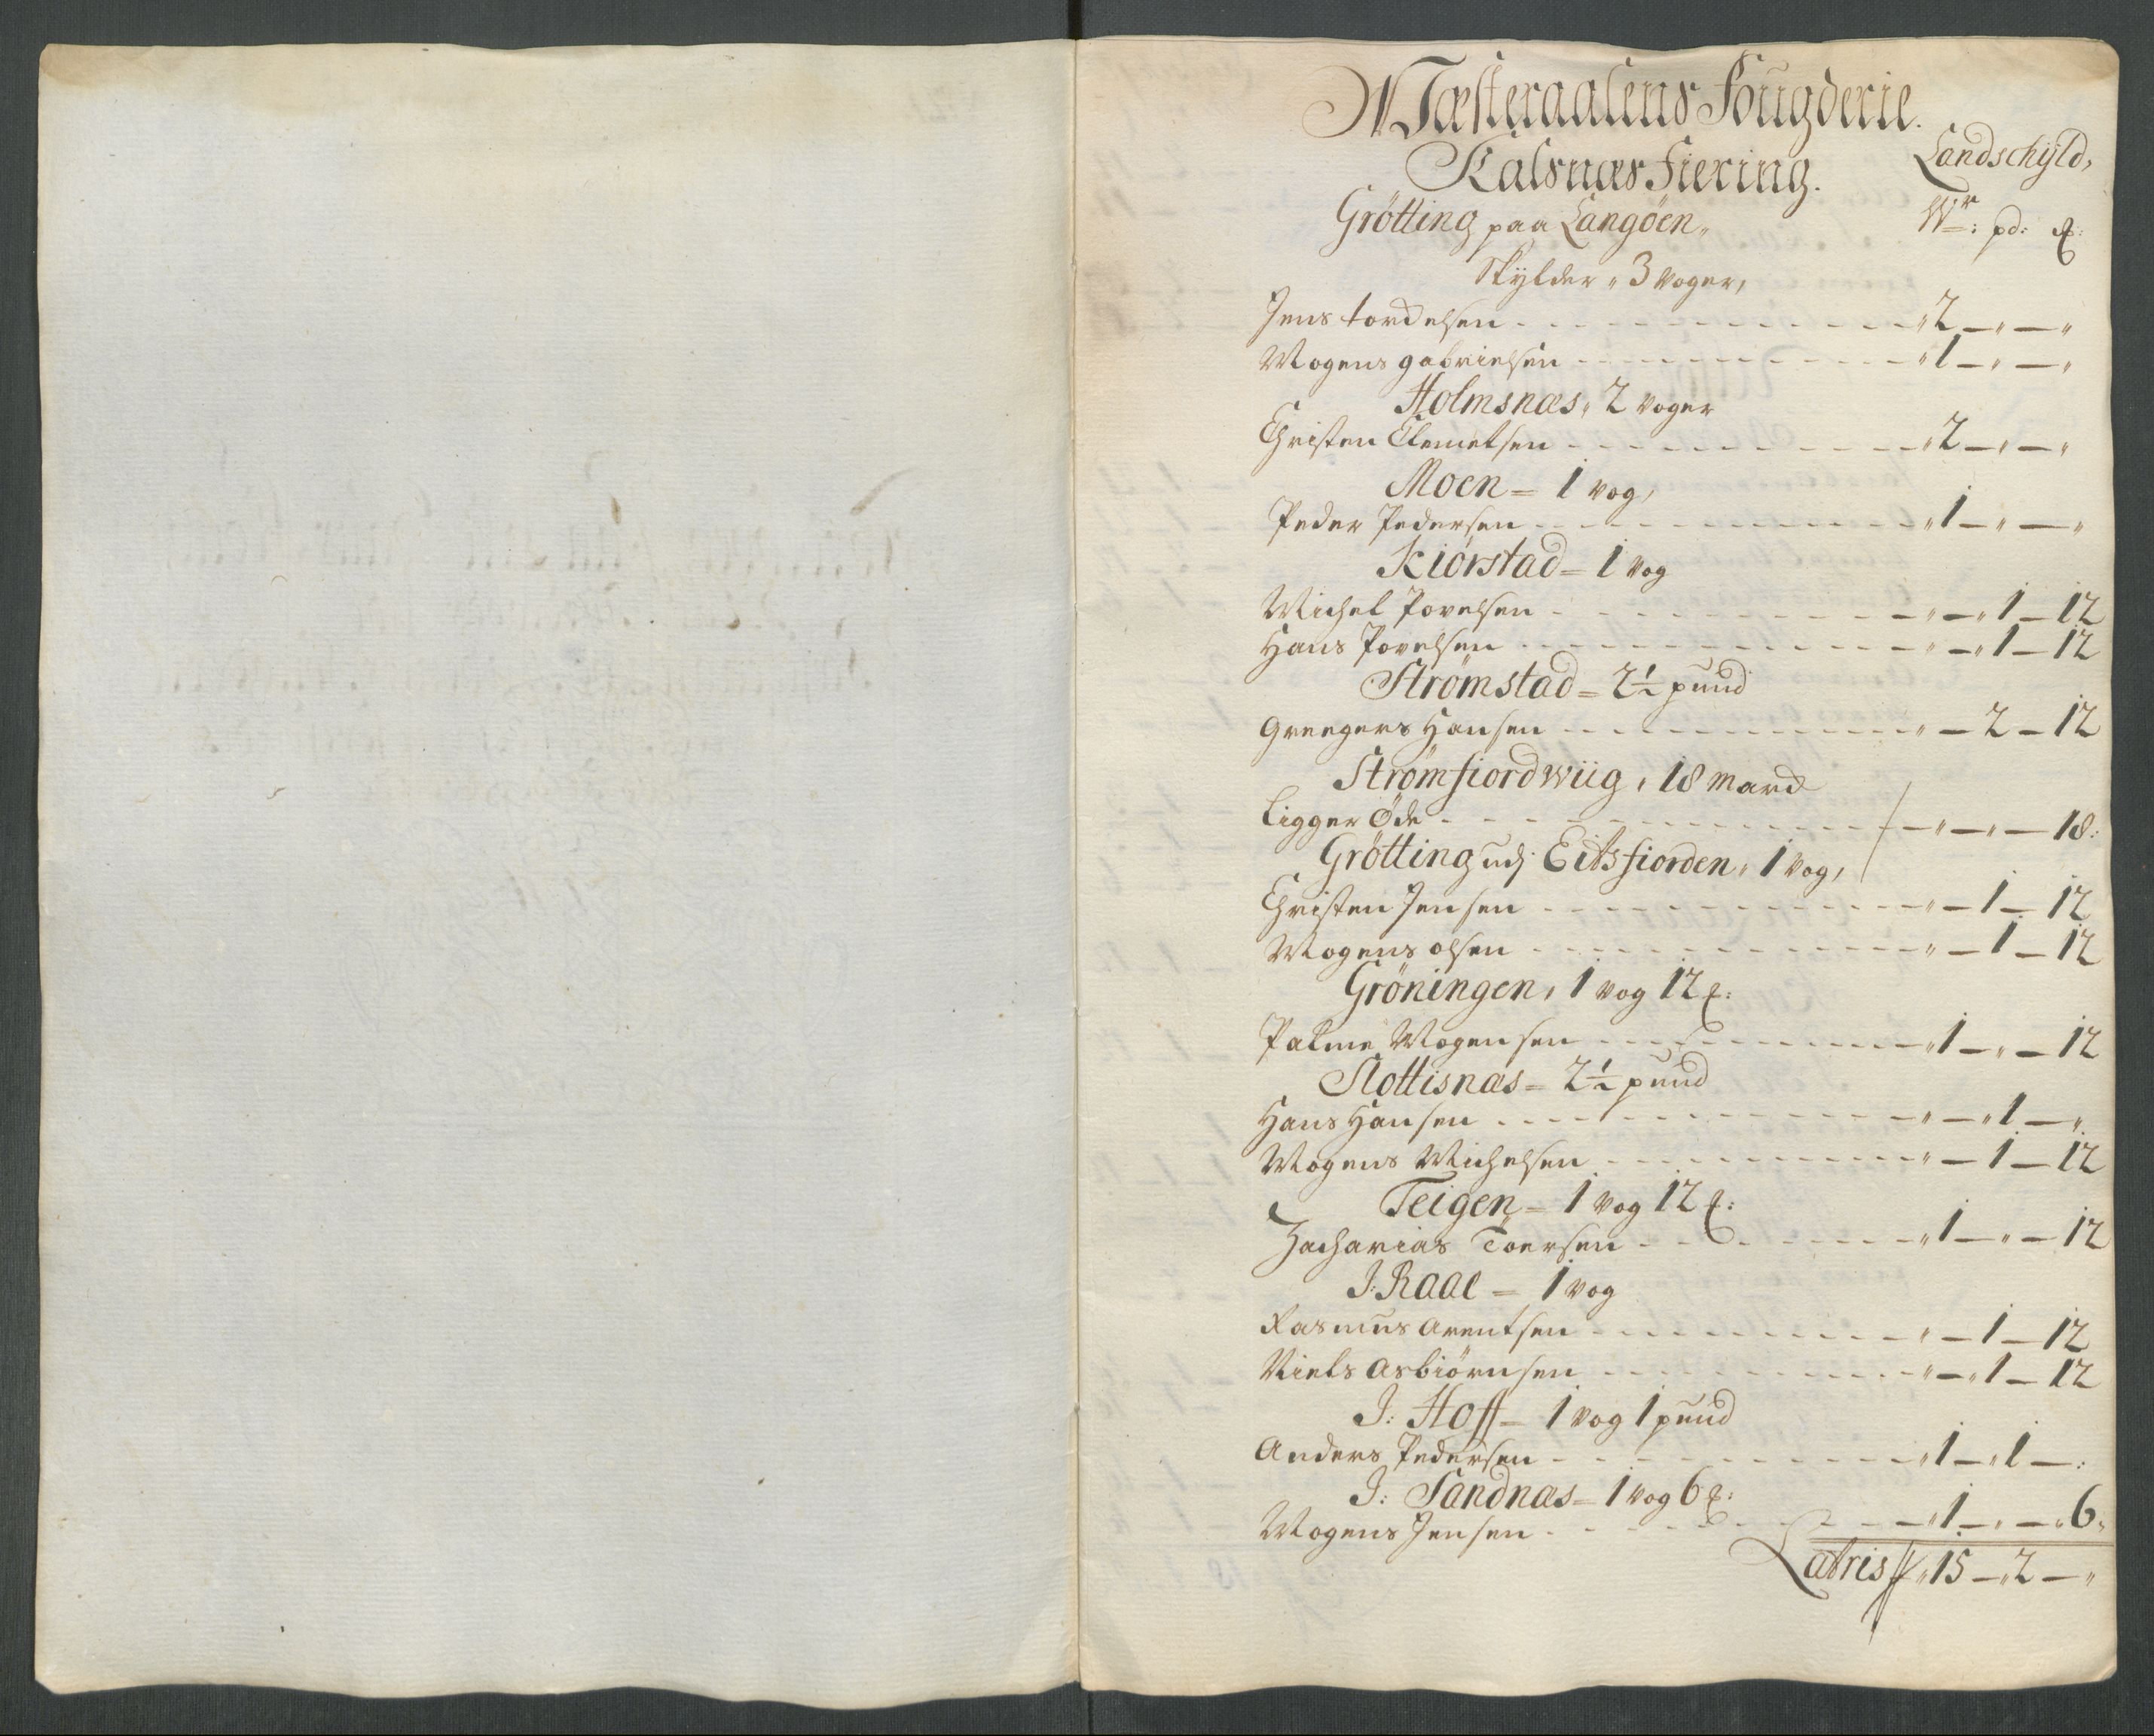 Wæsteraalens Fougderie.
Kalsnæs Fiering.
Landschyld,
Grötting paa Langöen,
Wr: pd: ℔:
Skylder, 3 voger,
Jens tordelsen - - - " 2 — " — "
Mogens gabrielsen - - - " 1 — " — "
Holmsnæs, 2 voger
Christen Clemetsen - - - " 2 — " — "
Moen = 1 vog,
Peder Pedersen - - - " 1 — " — "
Kiörstad = 1 vog
Michel Povelsen - - - " — " 1 — 12
Hans Povelsen - - - " — " 1 — 12
Strömstad = 2½ pund
Greegers Hansen - - - " — 2 — 12
Strömfiordwiig, 18 mard
Ligger Öde - - - — " — " — 18:
Grötting udj Eidsfiorden, 1 vog,
Christen Jensen - - - " — 1 — 12
Mogens olsen - - - " — 1 — 12
Gröningen, 1 vog 12 ℔:
Palme Mogensen - - - " 1 — " — 12
Slottisnæs = 2½ pund
Hans Hansen - - - " — " 1 — "
Mogens Michelsen - - - " — 1 — 12
Teigen = 1 vog 12 ℔:
Zacharias Toersen - - - " 1 — " — 12
J: Raae = 1 vog
Rasmus Arentsen - - - " — 1 — 12
Niels Asbiörnsen - - - " — " 1 — 12
J: Hoff = 1 vog 1 pund
Anders Pedersen - - - " 1 — " 1 — :
J: Sandnæs = 1 vog 6 ℔:
Mogens Jensen - - - " 1 — " — " 6 "
Latris " 15 — " 2 — "